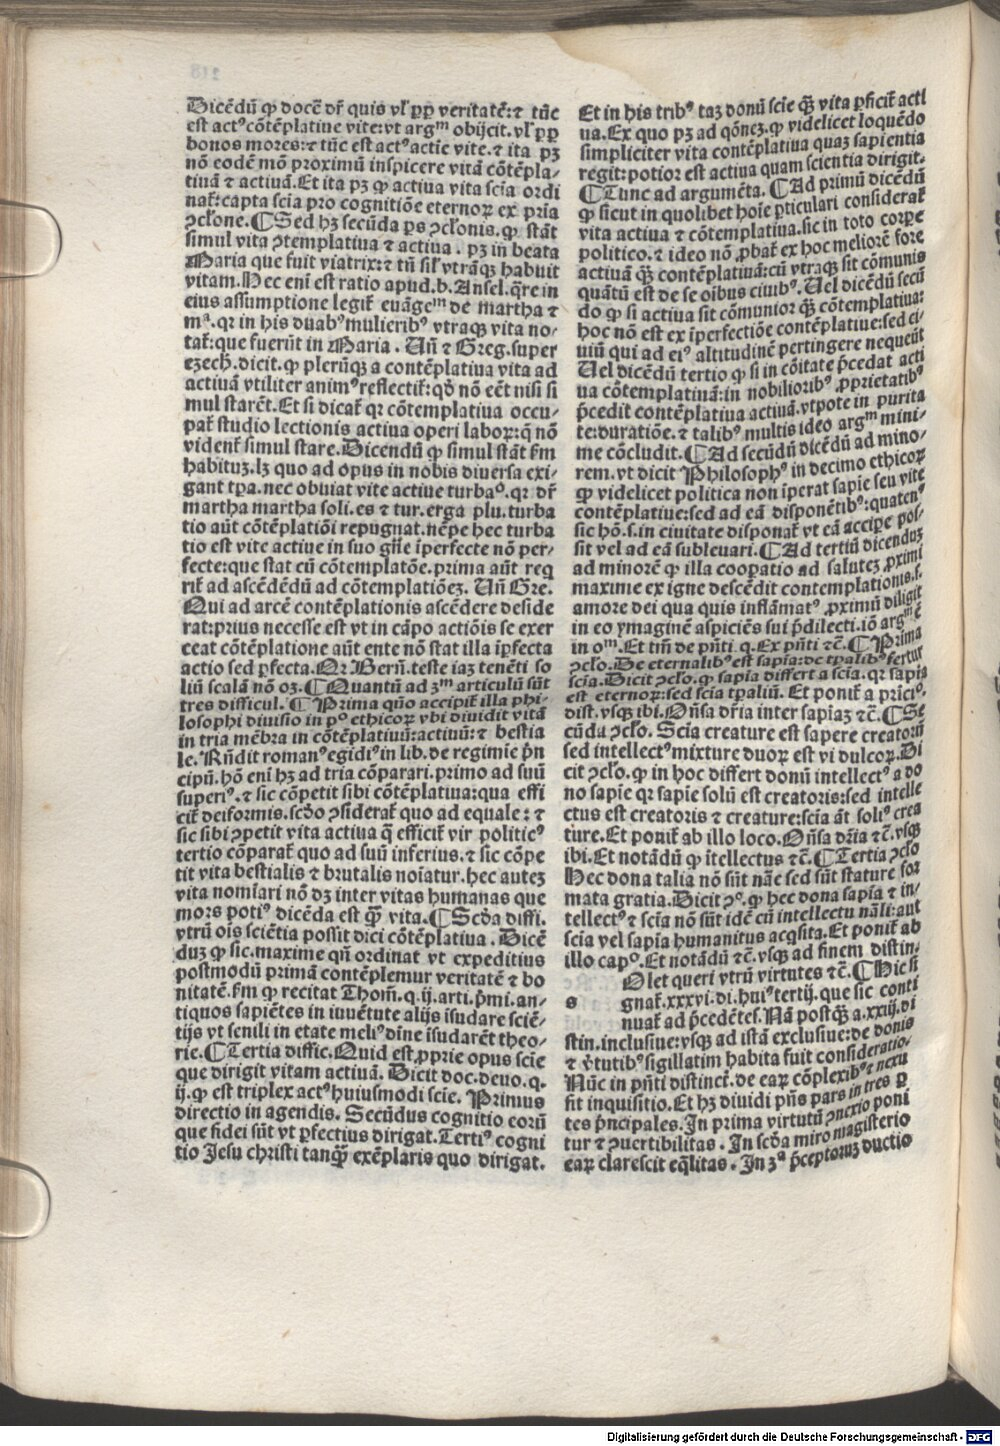 Dicēdū ꝙ docē dr̄ quis vl' ꝓꝑ veritatē: ⁊ tūc
est actꝰ cōtēplatiue vite: vt argᵐ obijcit. vl' ꝓꝑ
bonos mores: ⁊ tūc est actꝰ actīe vite. ⁊ ita pꝫ
nō eodē mō proximū inspicere vitā cōtēpla-
tiuā ⁊ actiuā. Et ita pꝫ ꝙ actiua vita scīa ordi
nat̄: capta scīa pro cognitiōe eternoꝝ ex pria
ꝯcl'one. ¶ Sed hꝫ secūda ps ꝯcl'onis. ꝙ stāt
simul vita ꝯtemplatiua ⁊ actiua. pꝫ in beata
Maria que fuit viatrix: ⁊ tn̄ sil' vtrāqꝫ habuit
vitam. Hec enī est ratio apud. b. Ansel. q̄re in
eius assumptione legit̄ euāgeᵐ de martha ⁊
mᵃ. qꝛ in his duabꝰ mulieribꝰ vtraqꝫ vita no-
tat̄: que fuerūt in Maria. Un̄ ⁊ Greg. super
ezech. dicit. ꝙ plerūqꝫ a contēplatiua vita ad
actiuā vtiliter animꝰ reflectit̄: qđ nō eēt nisi si
mul starēt. Et si dicat̄ qꝛ cōtemplatiua occu-
pat̄ studio lectionis actiua operi laboꝝ: q̄ nō
vident̄ simul stare. Dicendū ꝙ simul stāt fm
habituꝫ. lꝫ quo ad opus in nobis diuersa exi-
gant tꝑa. nec obuiat vite actiue turbaᵒ. qꝛ dr̄
martha martha soli. es ⁊ tur. erga plu. turba
tio aūt cōtēplatiōi repugnat. nēpe hec turba
tio est vite actiue in suo gn̄e īperfecte nō per-
fecte: que stat cū cōtemplatōe. prima aūt req
rit̄ ad ascēdēdū ad cōtemplatiōeꝫ. Un̄ Gre.
Qui ad arcē contēplationis ascēdere deside
rat: prius necesse est vt in cāpo actiōis se exer
ceat cōtēplatione aūt ente nō stat illa īperfecta
actio sed ꝑfecta. Qꝛ Bern̄. teste iaꝫ tenēti so
liū scalā nō oꝫ. ¶ Quantū ad 3ᵐ articulū sūt
tres difficul. ¶ Prima quō accipit̄ illa phi-
losophi diuisio in pᵒ ethicoꝝ vbi diuidit vitā
in tria mēbra in cōtēplatiuū: actiuū: ⁊ bestia
le. Rn̄dit romanꝰ egidiꝰ in lib. de regimīe pn̄
cipū. hō enī hꝫ ad tria cōparari. primo ad suū
superiꝰ. ⁊ sic cōpetit sibi cōtēplatiua: qua effi
cit̄ deiformis. scd'o ꝯsiderat̄ quo ad equale: ⁊
sic sibi ꝯpetit vita actiua q̄ efficit̄ vir politicꝰ
tertio cōparat̄ quo ad suū inferius. ⁊ sic cōpe
tit vita bestialis ⁊ brutalis noīatur. hec auteꝫ
vita nomīari nō dꝫ inter vitas humanas que
mors potiꝰ dicēda est q̄ꝫ vita. ¶ Scd'a diffi.
vtrū oīs sciētia possit dici cōtēplatiua. Dicē
duꝫ ꝙ sic. maxime qn̄ ordinat vt expeditius
postmodū primā contēplemur veritatē ⁊ bo
nitatē. fm ꝙ recitat Thom̄. q. ij. arti. p̄mi. an-
tiquos sapiētes in iuuētute alijs īsudare sciē-
tijs vt senili in etate meliꝰ diūe īsudarēt theo-
rie. ¶ Tertia diffic. Quid est ꝓprie opus scīe
que dirigit vitam actiuā. Dicit doc. deuo. q.
ij. ꝙ est triplex actꝰ huiusmodi scīe. Primus
directio in agendis. Secūdus cognitio eorū
que fidei sūt vt ꝑfectius dirigat. Tertiꝰ cogni
tio Jesu christi tanq̄ꝫ exēplaris quo dirigat.
Et in his tribꝰ taꝫ donū scīe q̄ꝫ vita ꝑficit̄ acti
ua. Ex quo pꝫ ad qōneꝫ. ꝙ videlicet loquēdo
simpliciter vita contēplatiua quaꝫ sapientia
regit: potior est actiua quam scientia dirigit.
¶ Tunc ad argumēta. ¶ Ad primū dicēdū
ꝙ sicut in quolibet hoīe ꝑticulari considerat̄
vita actiua ⁊ cōtemplatiua. sic in toto corpe
politico. ⁊ ideo nō ꝓbat̄ ex hoc meliorē fore
actiuā q̄ꝫ contēplatiuā: cū vtraqꝫ sit cōmunis
quātū est de se oībus ciuibꝰ. Uel dicēdū secū
do ꝙ si actiua sit cōmunior q̄ꝫ cōtemplatiua:
hoc nō est ex īperfectiōe contēplatiue: sed ci-
uiū qui ad eiꝰ altitudinē pertingere nequeūt
Uel dicēdū tertio ꝙ si in cōitate p̄cedat acti
ua cōtemplatiuā: in nobilioribꝰ ꝓprietatibꝰ
p̄cedit contēplatiua actiuā. vtpote in purita
te: duratiōe. ⁊ talibꝰ multis ideo argᵐ mini-
me cōcludit. ¶ Ad secūdū dicēdū ad mino-
rem. vt dicit Philosophꝰ in decimo ethicoꝝ
ꝙ videlicet politica non īperat sapīe seu vite
contēplatiue: sed ad eā disponētibꝰ: quatenꝰ
sic hō. s. in ciuitate disponat̄ vt eā accipe pos-
sit vel ad eā subleuari. ¶ Ad tertiū dicenduꝫ
ad minorē ꝙ illa cooꝑatio ad saluteꝫ ꝓximi
maxime ex igne descēdit contemplationis. s.
amore dei qua quis inflāmatꝰ ꝓximū diligit
in eo ymaginē aspiciēs sui p̄dilecti. iō argᵐ ē
in oᵐ. Et tm̄ de pn̄ti. q. Ex pn̄ti ⁊c̄. ¶ Prima
ꝯcl'o. De eternalibꝰ est sapīa: de tꝑalibꝰ fertur
scīa. Dicit ꝯcl'o. ꝙ sapīa differt a scīa. qꝛ sapīa
est eternoꝝ: sed scīa tꝑaliū. Et ponit̄ a prīciᵒ.
dist. vsqꝫ ibi. On̄sa dr̄ia inter sapīaꝫ ⁊c̄. ¶ Se
cūda ꝯcl'o. Scīa creature est sapere creatorū
sed intellectꝰ mixture duoꝝ est vi dulcoꝝ. Di
cit ꝯcl'o. ꝙ in hoc differt donū intellectꝰ a do
no sapīe qꝛ sapīe solū est creatoris: sed intelle
ctus est creatoris ⁊ creature: scīa āt soliꝰ crea
ture. Et ponit̄ ab illo loco. On̄sa dr̄ia ⁊c̄. vsqꝫ
ibi. Et notādū ꝙ ītellectus ⁊c̄. ¶ Tertia ꝯcl'o
Hec dona talia nō sūt nāe sed sūt stature for
mata gratia. Dicit ꝯᵒ. ꝙ hec dona sapīa ⁊ in-
tellectꝰ ⁊ scīa nō sūt idē cū intellectu nāli: aut
scīa vel sapīa humanitus acqsita. Et ponit̄ ab
illo capᵒ. Et notādū ⁊c̄. vsqꝫ ad finem distin.
Olet queri vtrū virtutes ⁊c̄. ¶ Hic si
s gnat̄. xxxvi. di. huiꝰ tertij. que sic conti
nuat̄ ad p̄cedētes. Nā postq̄ꝫ a. xxiij. di
stin. inclusiue: vsqꝫ ad istā exclusiue: de donis
⁊ v̄tutibꝰ sigillatim habita fuit consideratio.
Nūc in pn̄ti distinct. de eaꝝ cōplexibꝰ ⁊ nexu
fit inquisitio. Et hꝫ diuidi pn̄s pars in tres ꝑ
tes p̄ncipales. In prima virtutū ꝯnexio poni
tur ⁊ ꝯuertibilitas. In scd'a miro magisterio
eaꝝ clarescit eq̄litas. In 3ᵃ p̄ceptoruꝫ ductio
Digitalisierung gefördert durch die Deutsche Forschungsgemeinschaft - DFG